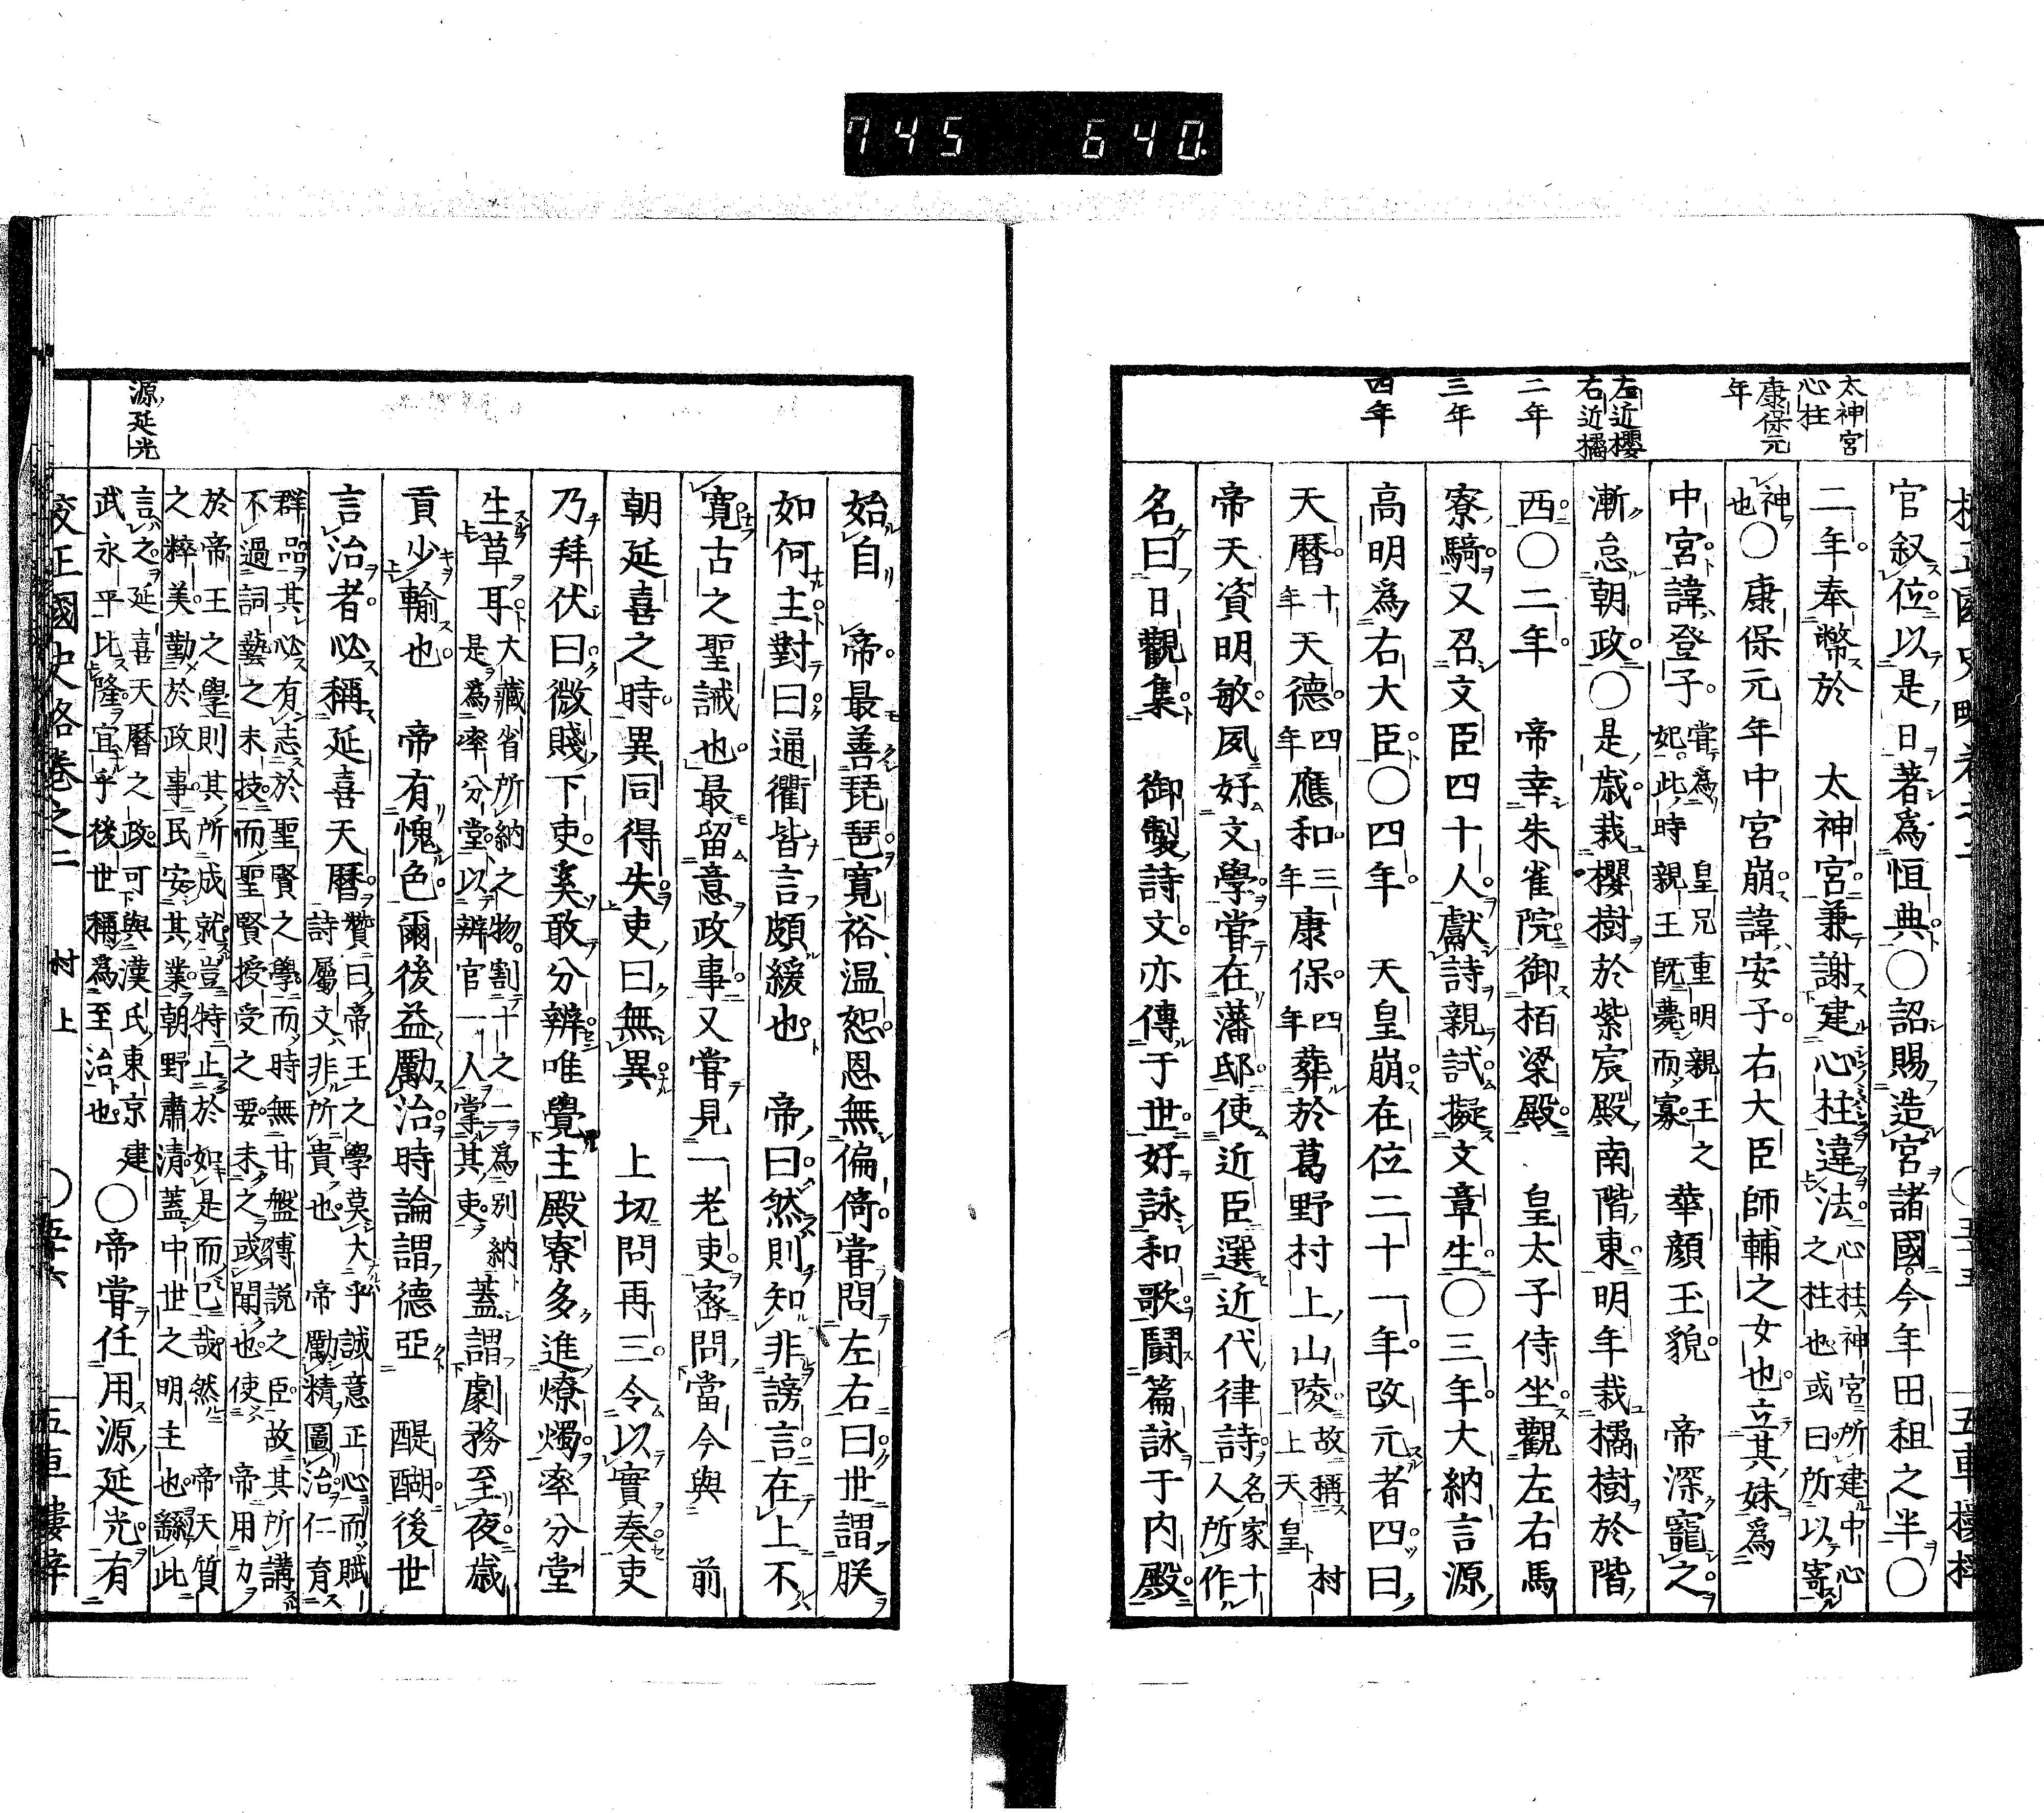 745 640
太神宮
心柱
康保元
年
左近櫻
右近橘
二年
三年
四年
官叙位以是日著爲恒典○詔賜造宮諸國今年田租之半○
二年奉幣於 太神宮兼謝建心柱違法之心柱神宮所建中心
柱也或曰所以寄
神
也○康保元年中宮崩諱安子右大臣師輔之女也立其妹爲
中宮諱登子嘗爲 皇兄重明親王之
妃此時 親王既薨而寡華顏玉貌 帝深寵之
漸怠朝政○是歳栽櫻樹於紫宸殿南階東明年栽橘樹於階
西○二年 帝幸朱雀院御栢梁殿 皇太子侍坐觀左右馬
寮騎又召文臣四十人獻詩親試擬文章生○三年大納言源
高明爲右大臣○四年 天皇崩在位二十一年改元者四曰
天曆十
年天德四
年應和三
年康保四
年葬於葛野村上山陵故稱 村
上天皇
帝天資明敏夙好文學嘗在藩邸使近臣選近代律詩名家十
人所作
名曰日觀集 御製詩文亦傳于世好詠和歌鬪篇詠于内殿
始自 帝最善琵琶寬裕温恕恩無偏倚嘗問左右曰世謂朕
如何主對曰通衢皆言頗緩也 帝曰然則知非謗言在上不
寬古之聖誡也最留意政事又嘗見一老吏密問當今與 前
朝延喜之時異同得失吏曰無異 上切問再三令以實奏吏
乃拜伏曰微賤下吏奚敢分辨唯覺主殿寮多進燎燭率分堂
生草耳大藏省所納之物割十之二爲別納
是爲率分堂以辨官一人掌其吏蓋謂劇務至夜歳
貢少輸也 帝有愧色爾後益勵治時論謂德亞 醍醐後世
言治者必稱延喜天曆贊曰帝王之學莫大乎誠意正心而賦
詩屬文非所貴也 帝勵精圖治仁育
群品其必有志於聖賢之學而時無甘盤傅説之臣故其所講
不過詞藝之末技而聖賢授受之要未之或聞也使 帝用力
於帝王之學則其所成就豈特止於如是而已哉然 帝天質
之粹美勤於政事民安其業朝野肅清蓋中世之明主也繇此
言之延喜天曆之政可與漢氏東京建
武永平比隆宜乎後世稱爲至治也○帝嘗任用源延光有
源延光
校正國史略卷之二 村上 ○五十六 五車樓梓